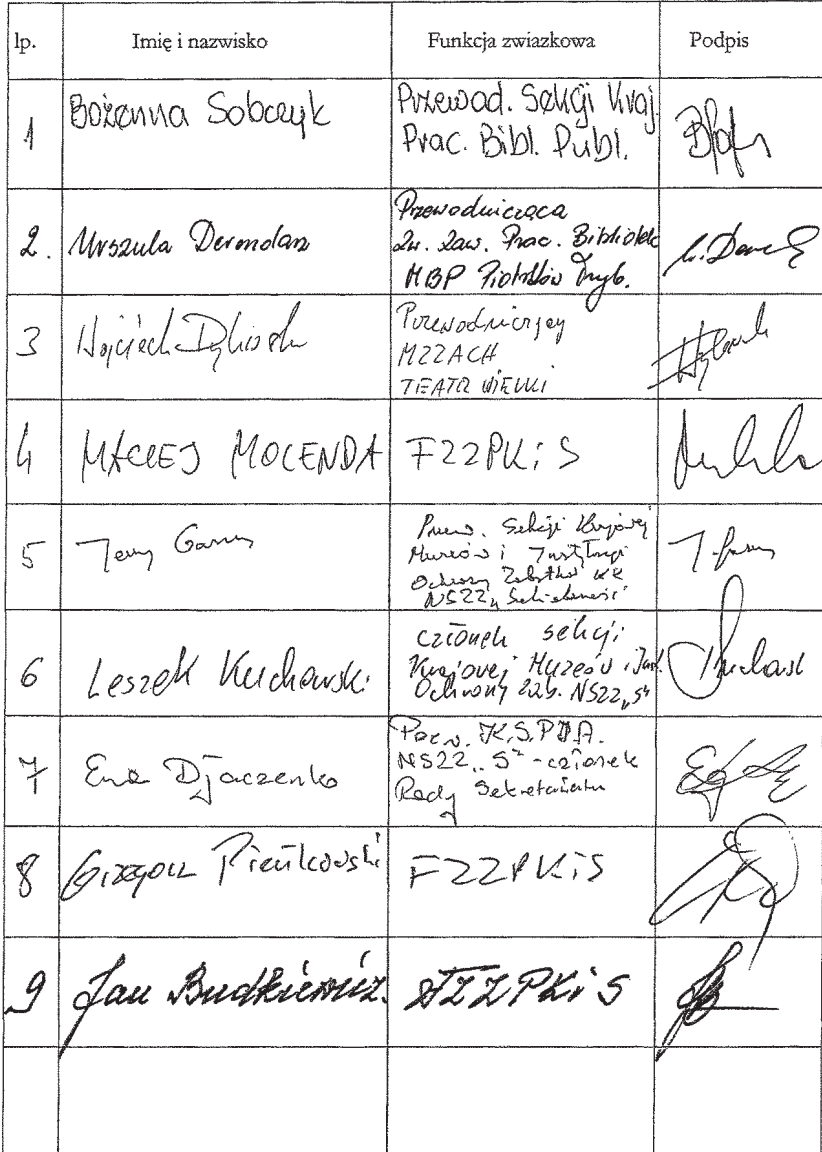 lp. Imię i nazwisko Funkcja zwiazkowa Podpis
1 Bożenna Sobczyk Przewod. Sekcji Kraj.
Prac. Bibl. Publ.
2. Urszula Dermolarz Przewodnicząca
Zw. Zaw. Prac. Bibliotek
MBP Piotrków Tryb.
3 Wojciech Przewodniczący
MZZACH
TEATR WIELKI
4 MACIEJ MOCENDA FZZPKiS
5 Jerzy Przew. Sekcji Krajowej
Muzeów i Instytucji
Ochrony Zabytków KK
NSZZ „Solidarność"
6 Leszek Kucharski członek sekcji
Krajowej Muzeów i Inst.
Ochrony Zab. NSZZ „S"
7 Ewa Djaczenko K.S.P.D.A.
NSZZ „S" - członek
Rady Sekretariatu
8 Grzegorz Pieńkowski FZZPKiS
9 Jan Budkiewicz. FZZPKiS